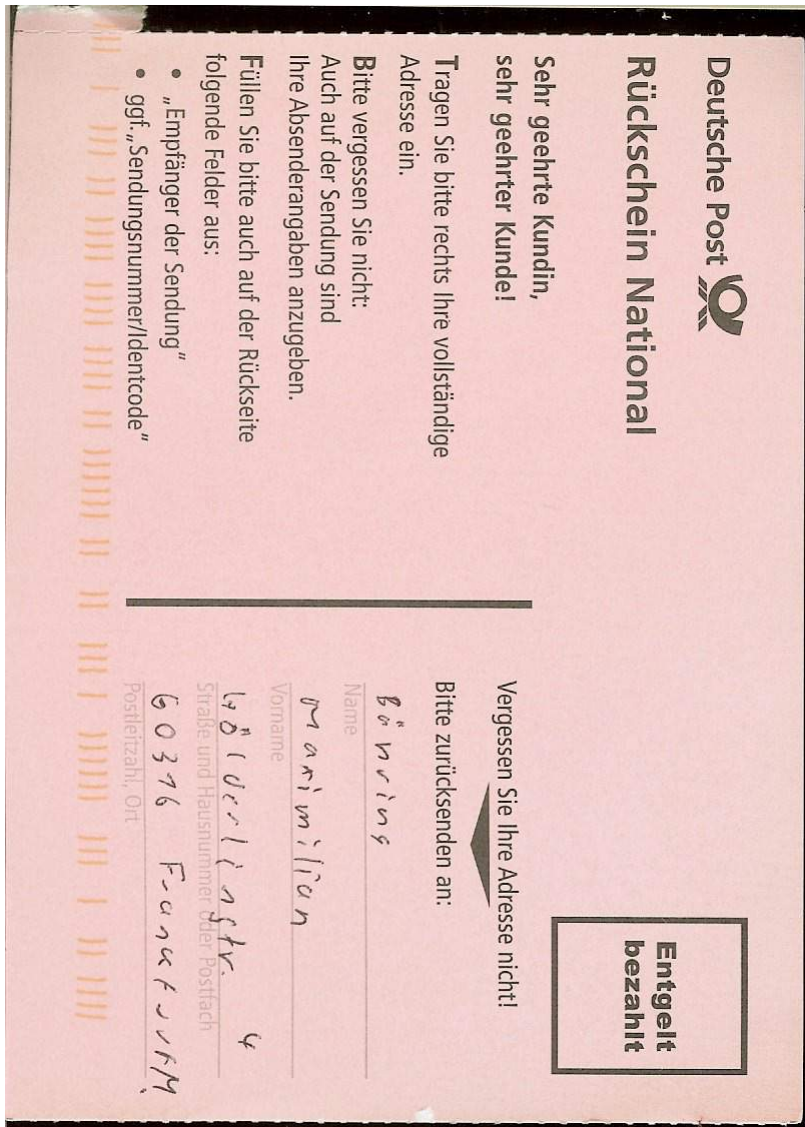 Deutsche Post
Rückschein National
Sehr geehrte Kundin,
sehr geehrter Kunde!
Tragen Sie bitte rechts Ihre vollständige
Adresse ein.
Bitte vergessen Sie nicht:
Auch auf der Sendung sind
Ihre Absenderangaben anzugeben.
Füllen Sie bitte auch auf der Rückseite
folgende Felder aus:
• „Empfänger der Sendung"
• ggf. „Sendungsnummer/Identcode"
Entgelt
bezahlt
Vergessen Sie Ihre Adresse nicht!
Bitte zurücksenden an:
Bähring
Name
Maximilian
Vorname
Hölderlinstr. 4
Straße und Hausnummer oder Postfach
60316 Frankfurt/M.
Postleitzahl, Ort